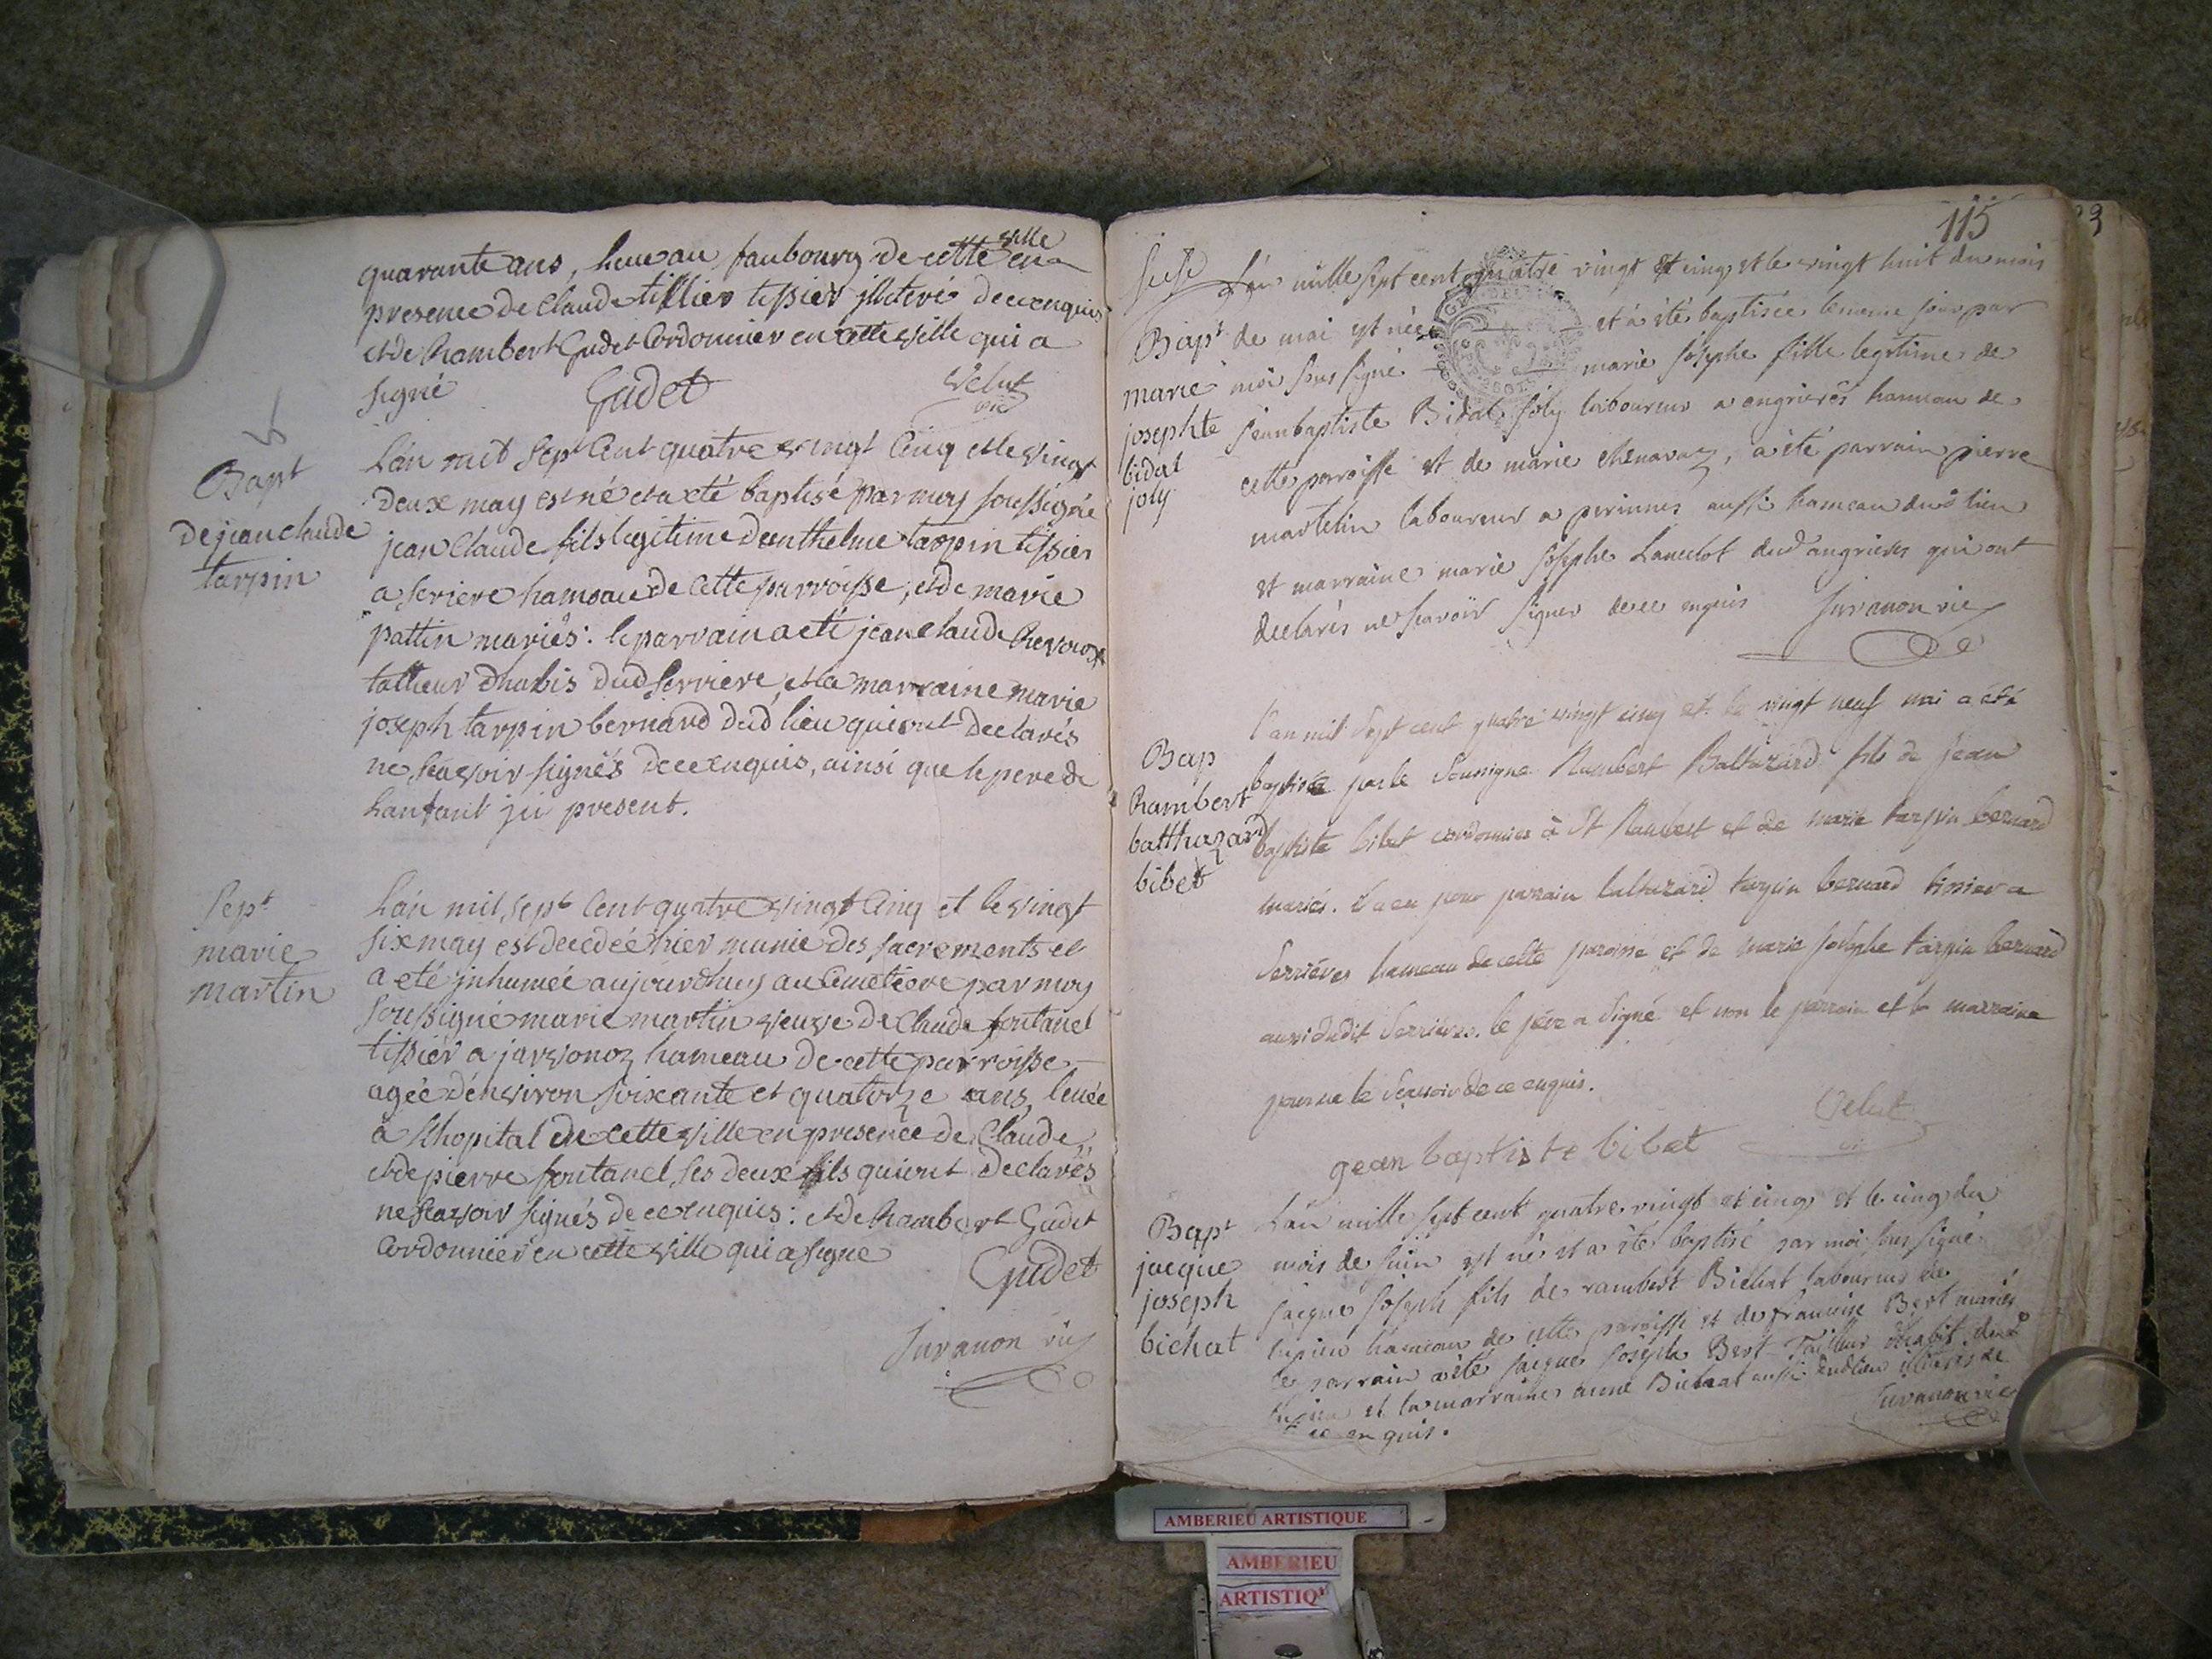 quarante ans, leue au faubourg de cette ville en
presence de Claude tillier tissier illetere de ce enquis
et de Rambert Gudet Cordonnier en cette ville qui a
signé Gudet Velut vic
Bapt
de jean claude
tarpin
L'an mil sept Cent quatre vingt Cinq et le vingt
deux may est né et a eté baptisé par moy soussigné
jean Claude fils legitime d'anthelme tarpin tissier
a seriere hameau de cette parroisse, et de marie
pattin mariés: le parrain a eté jean claude Revroux
tallieur d'habis dud serriere, et la marraine marie
joseph tarpin bernard dud lieu qui ont declarés
ne scavoir signés de ce enquis, ainsi que le pere de
lanfant ici present.
Sept
marie
martin
L'an mil, sept Cent quatre vingt Cinq et le vingt
six may est decedéé hier munie des sacrements et
a eté inhumée aujourd'huy au Cimetière par moy
soussigné marie martin veuve de Claude fontanel
tissier a jarvonoz hameau de cette parroisse
agéé d'environ soixante et quatorze ans, leuée
a l'hopital de cette ville en presence de Claude
et de pierre fontanel ses deux fils qui ont declarés
ne scavoir signés de ce enquis: et de Rambert Gudet
Cordonnier en cette ville qui a signe
Gudet
Juvanon vic
115
L'an mille sept cent quatre vingt et cinq et le vingt huit du mois
Bapt
marie
josephte
bidal
joly
de mai est née et a été baptisée le meme jour par
moi sous signé marie josephe fille legitime de
jean baptiste Bidal joly laboureur a angrieres hameau de
cette parroisse et de marie chenavaz, a été parrain pierre
martelin laboureur a perinnes aussi hameau dud lieu
et marraine marie josephe Lancelot dud angrieres qui ont
declarés ne scavoir signer de ce enquis Juvanon vic
Bap
Rambert
balthazard
bibet
l'an mil sept cent quatre vingt cinq et le vingt neuf mai a été
baptisé par le soussigné Rambert Baltazard fils de Jean
baptiste bibet cordonnier à St Rambert et de marie tarpin bernard
mariés. Il a eu pour parrain baltazard tarpin bernard tissier a
Serriéres hameau de cette paroisse et de marie josephe tarpin bernard
aussi dudit Serrieres. le père a signé et non le parrain et la marraine
pour ne le scavoir de ce enquis.
Velut
vi
gean baptiste bibet
Bapt
jacque
joseph
bichat
L'an mille sept cent quatre vingt et cinq et le cinq du
mois de juin est né et a été baptisé par moi sous signé
jacque joseph fils de rambert Bichat laboureur de
hameau de cette paroisse et de francoise Bert mariés
le parrain a été jacque joseph Bert Tailleur d'habit dud
et la marraine anne Bichat aussi dud lieu illiterés de
ce enquis. Juvanon vic
AMBERIEU ARTISTIQUE
AMBERIEU
ARTISTIQ